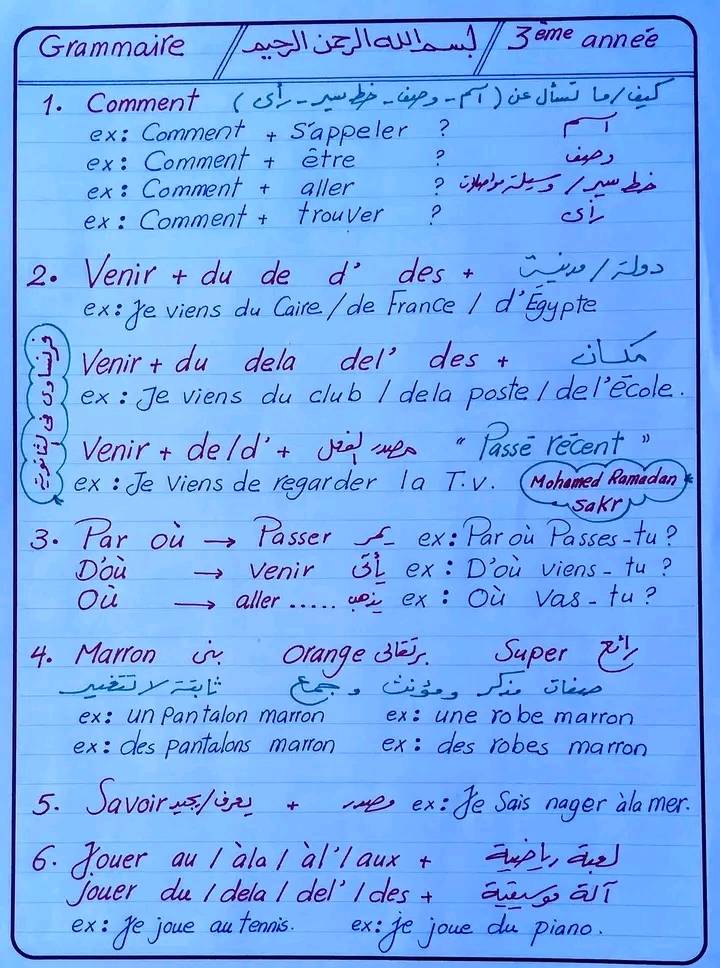 Grammaire // بسم الله الرحمن الرحيم // 3ème année
1. Comment (كيف/ما تسأل عن (اسم - وصف - خط سير - رأى
ex: Comment + s'appeler ? اسم
ex: Comment + être ? وصف
ex: Comment + aller ? خط سير / وسيلة مواصلات
ex: Comment + trouver ? رأى
2. Venir + du de d' des + دولة / مدينة
ex: Je viens du Caire / de France / d'Égypte
Venir + du dela del' des + مكان
ex: Je viens du club / dela poste / del'école.
Venir + de/d' + مصدر الفعل "Passé récent"
ex: Je viens de regarder la T.v.
Mohamed Ramadan
Sakr
فرنساوى فى الثانوية
3. Par où → Passer يمر ex: Par où Passes-tu ?
D'où → venir يأتى ex: D'où viens-tu ?
Où → aller ..... يذهب ex: Où vas-tu ?
4. Marron بنى Orange برتقالى Super رائع
صفات مذكر ومؤنث وجمع ثابتة لا تتغير
ex: un Pantalon marron ex: une robe marron
ex: des pantalons marron ex: des robes marron
5. Savoir يعرف/يجيد + مصدر ex: Je sais nager àla mer.
6. Jouer au / àla / àl' / aux + لعبة رياضية
Jouer du / dela / del' / des + آلة موسيقية
ex: Je joue au tennis. ex: je joue du piano.